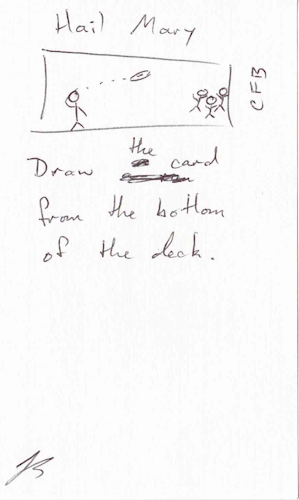 Hail Mary
CFB
the
Draw card
from the bottom
of the deck.